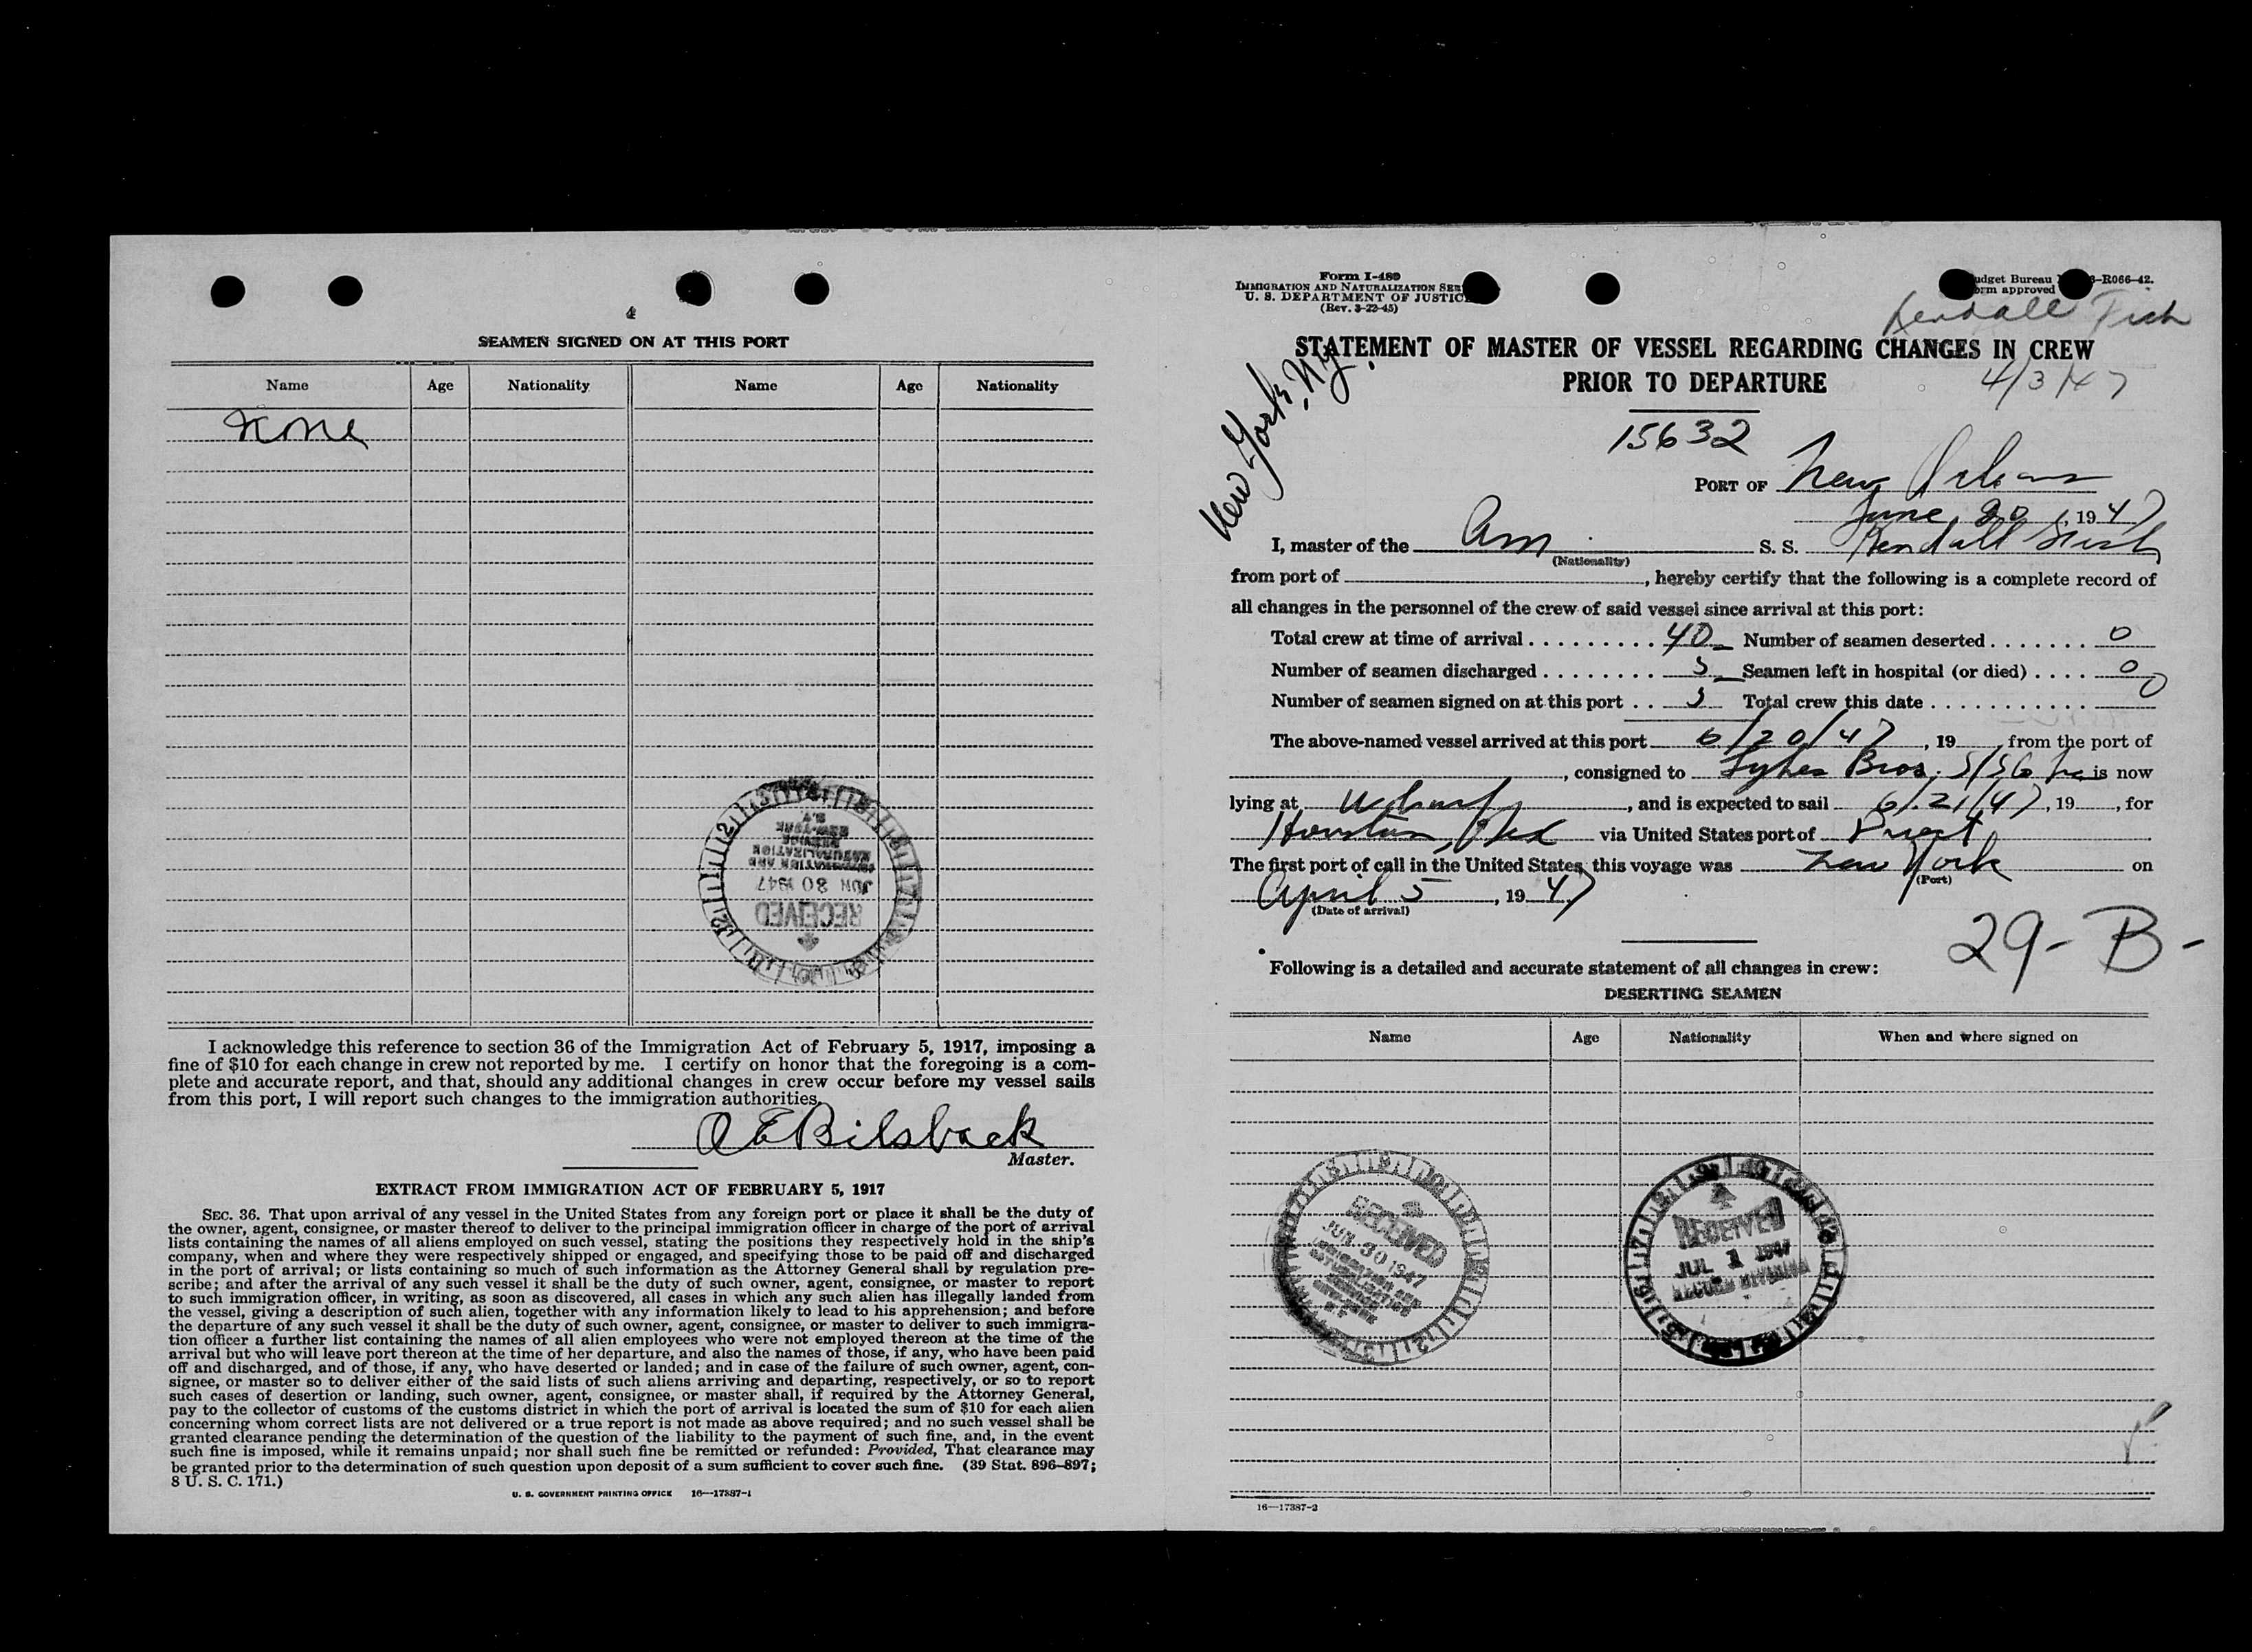 SEAMEN SIGNED ON AT THIS PORT
Name Age Nationality Name Age Nationality
None
I acknowledge this reference to section 36 of the Immigration Act of February 5, 1917, imposing a
fine of $10 for each change in crew not reported by me. I certify on honor that the foregoing is a com-
plete and accurate report, and that, should any additional changes in crew occur before my vessel sails
from this port, I will report such changes to the immigration authorities.
Bilsback
Master.
EXTRACT FROM IMMIGRATION ACT OF FEBRUARY 5, 1917
SEC. 36. That upon arrival of any vessel in the United States from any foreign port or place it shall be the duty of
the owner, agent, consignee, or master thereof to deliver to the principal immigration officer in charge of the port of arrival
lists containing the names of all aliens employed on such vessel, stating the positions they respectively hold in the ship's
company, when and where they were respectively shipped or engaged, and specifying those to be paid off and discharged
in the port of arrival; or lists containing so much of such information as the Attorney General shall by regulation pre-
scribe; and after the arrival of any such vessel it shall be the duty of such owner, agent, consignee, or master to report
to such immigration officer, in writing, as soon as discovered, all cases in which any such alien has illegally landed from
the vessel, giving a description of such alien, together with any information likely to lead to his apprehension; and before
the departure of any such vessel it shall be the duty of such owner, agent, consignee, or master to deliver to such immigra-
tion officer a further list containing the names of all alien employees who were not employed thereon at the time of the
arrival but who will leave port thereon at the time of her departure, and also the names of those, if any, who have been paid
off and discharged, and of those, if any, who have deserted or landed; and in case of the failure of such owner, agent, con-
signee, or master so to deliver either of the said lists of such aliens arriving and departing, respectively, or so to report
such cases of desertion or landing, such owner, agent, consignee, or master shall, if required by the Attorney General,
pay to the collector of customs of the customs district in which the port of arrival is located the sum of $10 for each alien
concerning whom correct lists are not delivered or a true report is not made as above required; and no such vessel shall be
granted clearance pending the determination of the question of the liability to the payment of such fine, and, in the event
such fine is imposed, while it remains unpaid; nor shall such fine be remitted or refunded: Provided, That clearance may
be granted prior to the determination of such question upon deposit of a sum sufficient to cover such fine. (39 Stat. 896–897;
8 U. S. C. 171.)
U. S. GOVERNMENT PRINTING OFFICE 16—17387-1
RECEIVED
JUN 30 1947
IMMIGRATION AND
NATURALIZATION
SERVICE
NEW YORK
N.Y.
Form I-489
IMMIGRATION AND NATURALIZATION SER
U. S. DEPARTMENT OF JUSTIC
(Rev. 3-22-45)
udget Bureau -R066-42.
orm approved
Kendall Fish
STATEMENT OF MASTER OF VESSEL REGARDING CHANGES IN CREW
PRIOR TO DEPARTURE
4/3/47
New York, N.Y.
15632
PORT OF New Orleans
June 20, 1947
I, master of the Am. S. S. Kendall Fish
(Nationality)
from port of , hereby certify that the following is a complete record of
all changes in the personnel of the crew of said vessel since arrival at this port:
Total crew at time of arrival 40 Number of seamen deserted 0
Number of seamen discharged Seamen left in hospital (or died) 0
Number of seamen signed on at this port Total crew this date 0
The above-named vessel arrived at this port 6/20/47, 19 , from the port of
, consigned to Lykes Bros. S/S Co Inc is now
lying at Wharf, and is expected to sail 6/21/47, 19 , for
Houston, Tex via United States port of Direct
The first port of call in the United States this voyage was New York on
(Port)
April 5, 1947
(Date of arrival)
29-B-
Following is a detailed and accurate statement of all changes in crew:
DESERTING SEAMEN
Name Age Nationality When and where signed on
RECEIVED
JUN 30 1947
IMMIGRATION AND
NATURALIZATION
SERVICE
NEW YORK
N.Y.
RECEIVED
JUL 1 1947
RECORD DIVISION
16—17387-2